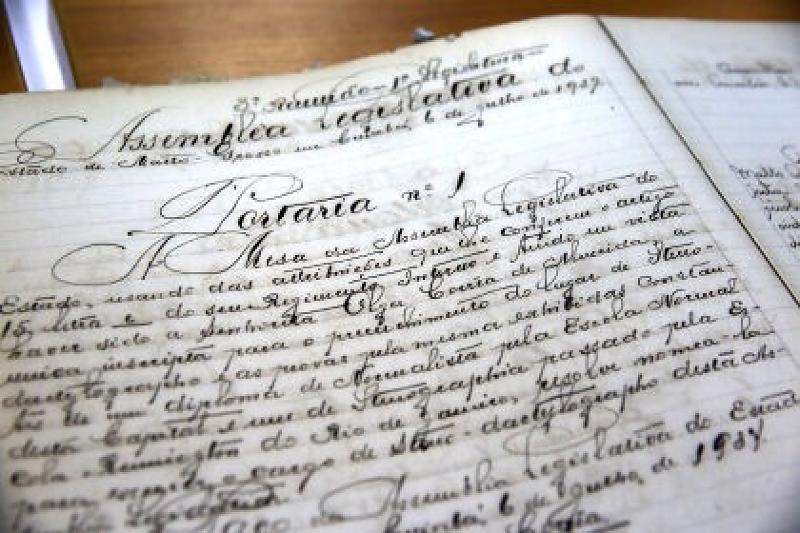 3ª Reunião - 1ª Legislatura
Assembléa Legislativa do
Estado de Matto-Grosso em Cuiabá, 6 de Julho de 1937
Portaria nº 1
A Mesa da Assembléa Legislativa do
Estado, usando das attribuições que lhe confere o artigo
15 letra e do seu Regimento Interno e tendo em vista
haver sido a Senhorita Elza Corrêa de Almeida, a
unica inscripta para o preenchimento do lugar de Steno-
dactylographo e as provas pela mesma exhibidas constan-
tes de um diploma de Normalista pela Escola Normal
desta Capital e um de Stenographia passado pela Es-
cola Remington do Rio de Janeiro, resolve nomea-la
para exercer o cargo de Steno-dactylographo desta As-
Paço da Assembléa Legislativa do Estado
Cuiabá, 6 de Julho de 1937